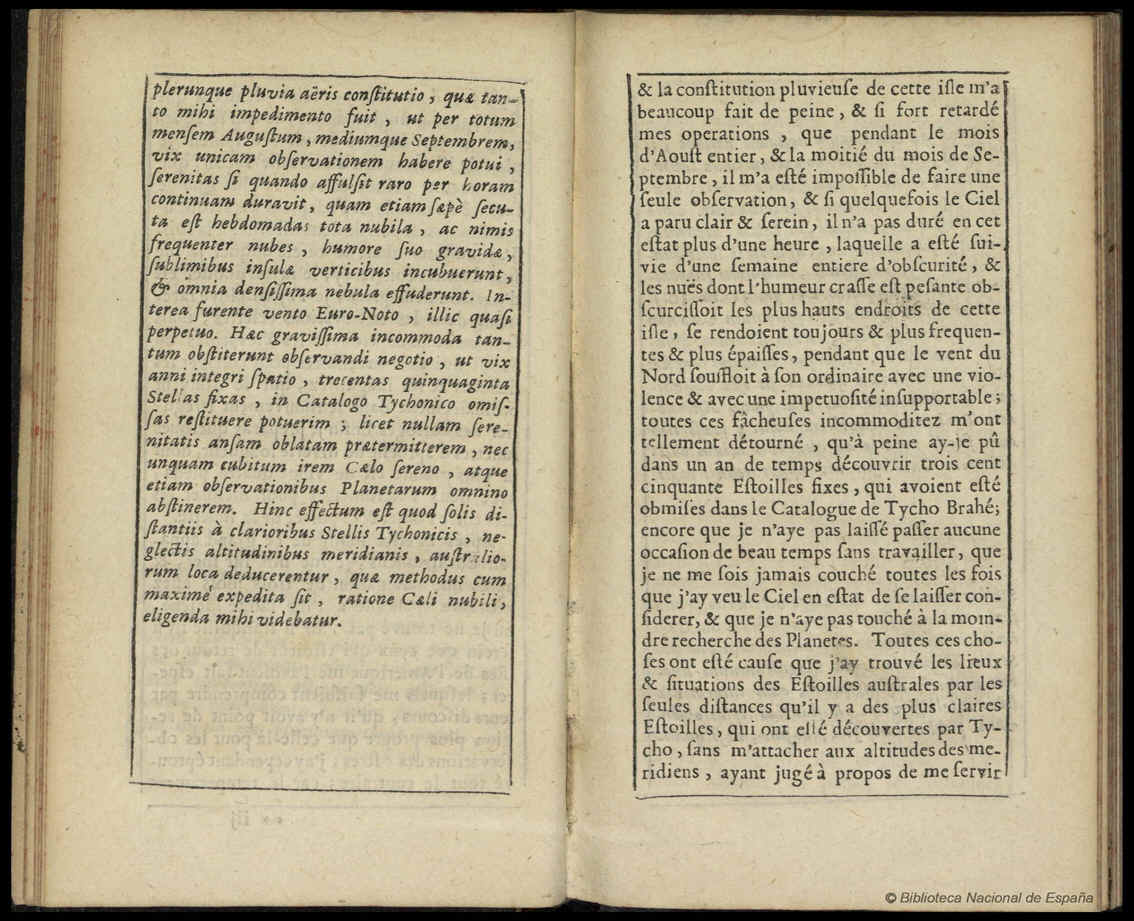 plerunque pluvia aëris conſtitutio, quæ tan-
to mihi impedimento fuit, ut per totum
menſem Auguſtum, mediumque Septembrem,
vix unicam obſervationem habere potui,
ſerenitas ſi quando affulſit raro per horam
continuam duravit, quam etiam ſæpè ſecu-
ta eſt hebdomadas tota nubila, ac nimis
frequenter nubes, humore ſuo gravidæ,
ſublimibus inſulæ verticibus incubuerunt,
& omnia denſiſſima nebula effuderunt. In-
terea furente vento Euro-Noto, illic quaſi
perpetuo. Hæc graviſſima incommoda tan-
tum obſtiterunt obſervandi negotio, ut vix
anni integri ſpatio, trecentas quinquaginta
Stellas fixas, in Catalogo Tychonico omiſ-
ſas reſtituere potuerim; licet nullam ſere-
nitatis anſam oblatam prætermitterem, nec
unquam cubitum irem Cælo ſereno, atque
etiam obſervationibus Planetarum omnino
abſtinerem. Hinc effectum eſt quod ſolis di-
ſtantiis à clarioribus Stellis Tychonicis, ne-
glectis altitudinibus meridianis, auſtralio-
rum loca deducerentur, quæ methodus cum
maximè expedita ſit, ratione Cæli nubili,
eligenda mihi videbatur.
& la conſtitution pluvieuſe de cette iſle m'a
beaucoup fait de peine, & ſi fort retardé
mes operations, que pendant le mois
d'Aouſt entier, & la moitié du mois de Se-
ptembre, il m'a eſté impoſſible de faire une
ſeule obſervation, & ſi quelquefois le Ciel
a paru clair & ſerein, il n'a pas duré en cet
eſtat plus d'une heure, laquelle a eſté ſui-
vie d'une ſemaine entiere d'obſcurité, &
les nuës dont l'humeur craſſe eſt peſante ob-
ſcurciſſoit les plus hauts endroits de cette
iſle, ſe rendoient toujours & plus frequen-
tes & plus épaiſſes, pendant que le vent du
Nord ſouffloit à ſon ordinaire avec une vio-
lence & avec une impetuoſité inſupportable;
toutes ces fâcheuſes incommoditez m'ont
tellement détourné, qu'à peine ay-je pû
dans un an de temps découvrir trois cent
cinquante Eſtoilles fixes, qui avoient eſté
obmiſes dans le Catalogue de Tycho Brahé;
encore que je n'aye pas laiſſé paſſer aucune
occaſion de beau temps ſans travailler, que
je ne me ſois jamais couché toutes les fois
que j'ay veu le Ciel en eſtat de ſe laiſſer con-
ſiderer, & que je n'aye pas touché à la moin-
dre recherche des Planetes. Toutes ces cho-
ſes ont eſté cauſe que j'ay trouvé les lieux
& ſituations des Eſtoilles auſtrales par les
ſeules diſtances qu'il y a des plus claires
Eſtoilles, qui ont eſté découvertes par Ty-
cho, ſans m'attacher aux altitudes des me-
ridiens, ayant jugé à propos de me ſervir
© Biblioteca Nacional de España